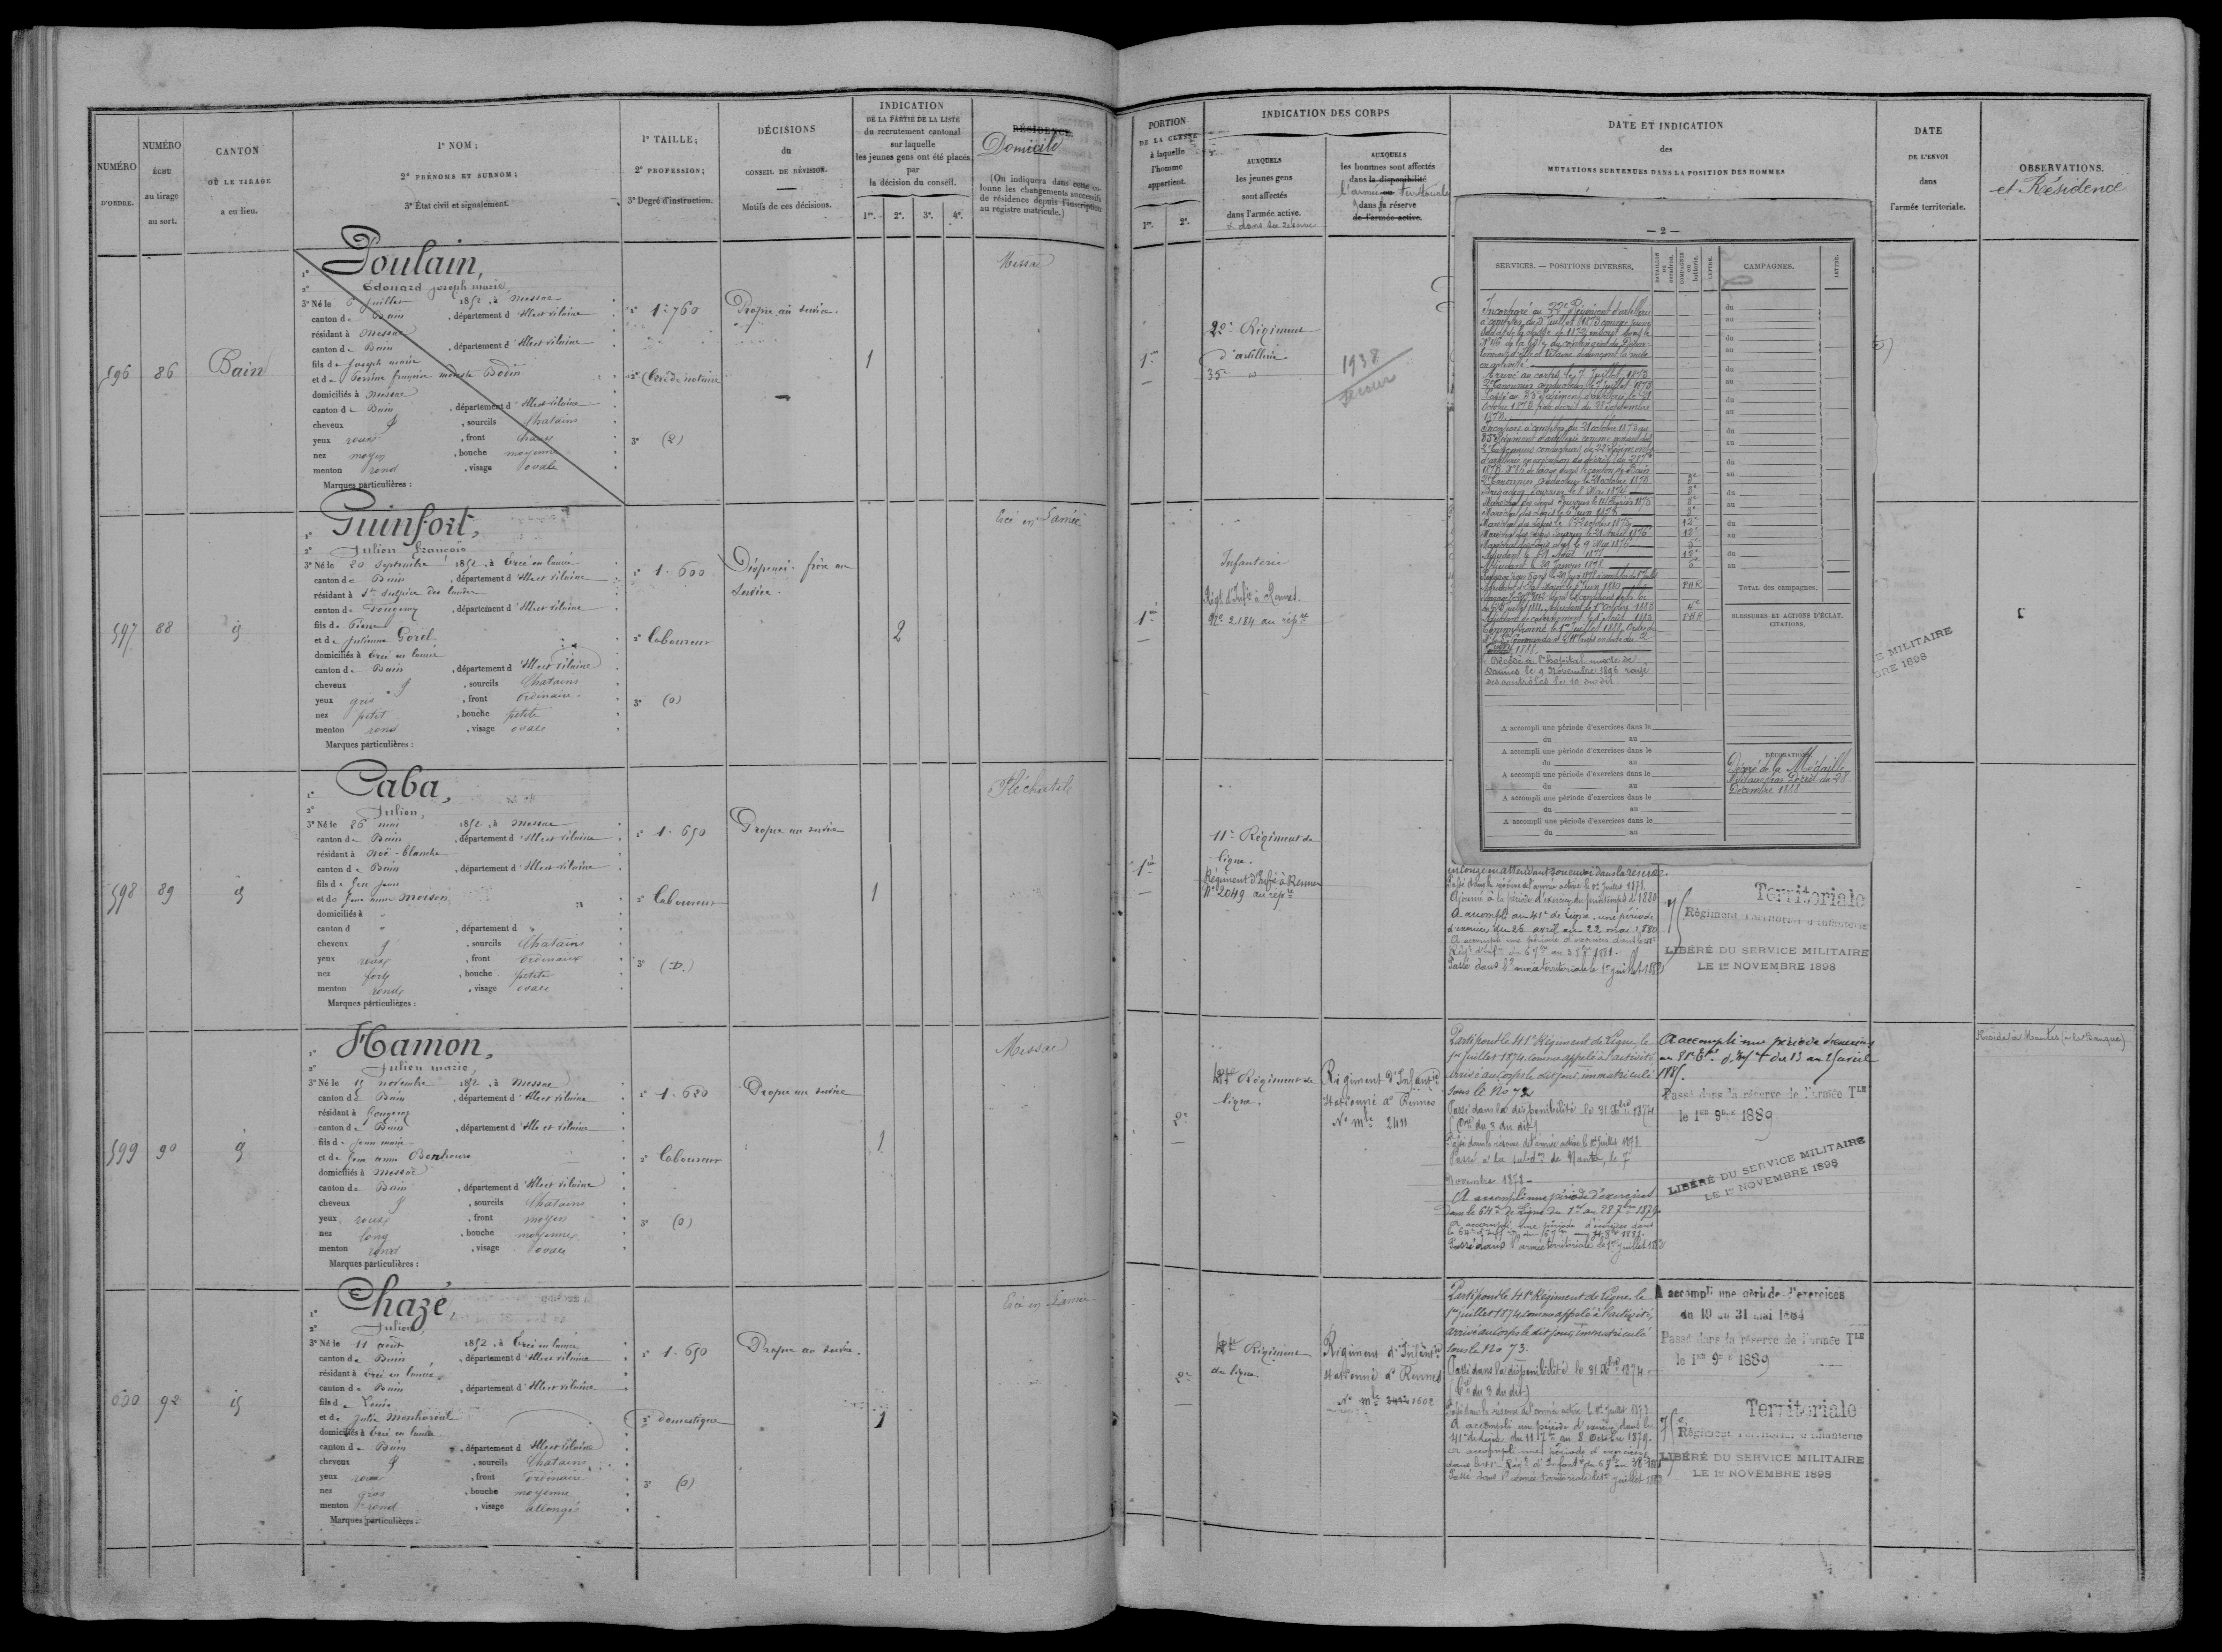 NUMÉRO
D'ORDRE.
NUMÉRO
ÉCHU
au tirage
au sort.
CANTON
OÙ LE TIRAGE
a eu lieu.
1° NOM ;
2° PRÉNOMS ET SURNOM ;
3° État civil et signalement.
1° TAILLE ;
2° PROFESSION ;
3° Degré d'instruction.
DÉCISIONS
du
CONSEIL DE RÉVISION.
Motifs de ces décisions.
INDICATION
DE LA PARTIE DE LA LISTE
du recrutement cantonal
sur laquelle
les jeunes gens ont été placés
par
la décision du conseil.
1re. 2e. 3e. 4e.
RÉSIDENCE.
Domicile
(On indiquera dans cette co-
lonne les changements successifs
de résidence depuis l'inscription
au registre matricule.)
PORTION
DE LA CLASSE
à laquelle
l'homme
appartient.
1re. 2e.
INDICATION DES CORPS
AUXQUELS
les jeunes gens
sont affectés
dans l'armée active.
et dans la réserve
AUXQUELS
les hommes sont affectés
dans la disponibilité
l'armée territoriale
dans la réserve
de l'armée active.
DATE ET INDICATION
des
MUTATIONS SURVENUES DANS LA POSITION DES HOMMES
DATE
DE L'ENVOI
dans
l'armée territoriale.
OBSERVATIONS.
et Résidence
596
86
Bain
1° Poulain,
2° Edouard joseph marie
3° Né le 6 juillet 1852, à Messac
canton de Bain, département d'Ille et vilaine
résidant à Messac
canton de Bain, département d'Ille et vilaine
fils de Joseph marie
et de Perrine françoise modeste Bodin
domiciliés à Messac
canton de Bain, département d'Ille et vilaine
cheveux, sourcils Chatains
yeux roux, front
nez moyen, bouche moyenne
menton rond, visage ovale
Marques particulières :
1° 1.760
3° (2)
Propre au service.
1
Messac
1re
22e Régiment
d'artillerie
35e
1938
597
88
1° Guinfort,
2° Julien François
3° Né le 20 Septembre 1852, à Ercé en lamée
canton de Bain, département d'Ille et vilaine
résidant à St Sulpice des landes
canton de Fougeray, département d'Ille et vilaine
fils de Pierre
et de Julienne Gorel
domiciliés à Ercé en lamée
canton de Bain, département d'Ille et vilaine
cheveux, sourcils Chatains
yeux gris, front ordinaire
nez petit, bouche petite
menton rond, visage ovale
Marques particulières :
1° 1.600
2° laboureur
3° (0)
Dispensé. frère au
service.
2
Ercé en Lamée
1re
Infanterie
Régt d'Infie à Rennes.
No 2184 au répre
598
89
1° Caba,
2° Julien,
3° Né le 26 mai 1852, à Messac
canton de Bain, département d'Ille et vilaine
résidant à Noë-blanche
canton de Bain, département d'Ille et vilaine
fils de feu Jean
et de feue anne Moison
domiciliés à
canton d, département d
cheveux, sourcils Chatains
yeux roux, front ordinaire
nez fort, bouche petite
menton rond, visage ovale
Marques particulières :
1° 1.650
2° laboureur
3° (D.)
Propre au service
1
Pléchatel
1re
11e Régiment de
ligne.
Régiment d'Infie à Rennes
No 2049 au répre
en congé en attendant son envoi dans la réserve.
Passé dans la réserve de l'armée active le 1er Juillet 1878.
Ajourné à la période d'exercices du printemps de 1880
A accompli au 41e de Ligne, une période
d'exercice du 26 avril au 22 mai 1880
A accompli une période d'exercices dans le 41e
Passé dans l'armée territoriale le 1er juillet 1882
Territoriale
75 Régiment Territorial d'Infanterie
LIBÉRÉ DU SERVICE MILITAIRE
LE 1er NOVEMBRE 1898
599
90
1° Hamon,
2° Julien marie,
3° Né le 15 novembre 1852, à Messac
canton de Bain, département d'Ille et vilaine
résidant à fougeray
canton de Bain, département d'Ille et vilaine
fils de Jean marie
et de feue anne Bonhomme
domiciliés à Messac
canton de Bain, département d'Ille et vilaine
cheveux, sourcils Chatains
yeux roux, front moyen
nez long, bouche moyenne
menton rond, visage ovale
Marques particulières :
1° 1.620
2° laboureur
3° (0)
Propre au service
1
Messac
2e
41e Régiment de
ligne.
Régiment d'Infantie
stationné à Rennes
No mle 2411
Parti pour le 41e Régiment de Ligne le
1er juillet 1874, comme appelé à l'activité
Arrivé au corps le dit jour, immatriculé
sous le No 72
Passé dans la disponibilité le 31 Xbre 1874
(Ore du 3 du dit)
Passé dans la réserve de l'armée active le 1er Juillet 1878.
Passé à la subdon de Nantes, le 7
Novembre 1878.
A accompli une période d'exercices
dans le 64e de Ligne du 1er au 28 7bre 1879
A accompli une période d'exercices dans
Passé dans l'armée territoriale le 1er juillet 1882
A accompli une période d'exercices
au 81e Ral d'Inf T du 13 au 25 avril
1885.
Passé dans la réserve de l'armée Tle
le 1er 9bre 1889
LIBÉRÉ DU SERVICE MILITAIRE
LE 1er NOVEMBRE 1898
Réside à Nantes
600
92
1° Chazé,
2° Julien,
3° Né le 11 août 1852, à Ercé en lamée
canton de Bain, département d'Ille et vilaine
résidant à Ercé en lamée
canton de Bain, département d'Ille et vilaine
fils de Louis
et de Julie Monharoul
domiciliés à Ercé en lamée
canton de Bain, département d'Ille et vilaine
cheveux, sourcils Chatains
yeux roux, front ordinaire
nez gros, bouche moyenne
menton rond, visage allongé
Marques particulières :
1° 1.650
2° domestique
3° (0)
Propre au service.
1
Ercé en Lamée
2e
41e Régiment
de ligne.
Régiment d'Infantie
stationné à Rennes
No mle 2412 1602
Parti pour le 41e Régiment de Ligne le
1er juillet 1874 comme appelé à l'activité,
arrivé au corps le dit jour, immatriculé
sous le No 73.
Passé dans la disponibilité le 31 Xbre 1874
(Ore du 3 du dit)
Passé dans la réserve de l'armée active le 1er Juillet 1878.
A accompli une période d'exercices dans le
41e de Ligne du 11 7bre au 8 Octobre 1879.
A accompli une période d'exercices
Passé dans l'armée territoriale le 1er juillet 1882
A accompli une période d'exercices
du 19 au 31 mai 1884
Passé dans la réserve de l'armée Tle
le 1er 9bre 1889
Territoriale
75e Régiment Territorial d'Infanterie
LIBÉRÉ DU SERVICE MILITAIRE
LE 1er NOVEMBRE 1898
— 2 —
SERVICES. — POSITIONS DIVERSES.
BATAILLON ou escadron.
COMPAGNIE ou batterie.
LETTRE.
CAMPAGNES.
LETTRE.
Incorporé au 22e Régiment d'artillerie
à compter du 3 Juillet 1873 comme jeune
soldat de la classe de 1872
en activité
Arrivé au corps le 7 Juillet 1873
2e Canonnier conducteur le 7 Juillet 1873
Passé au 35e Régiment d'artillerie le 21
Octobre 1873 par décret du 28 septembre
1873.
2e Canonnier conducteur le 21 octobre 1873
Brigadier fourrier le 8 Mai 1874
Adjudant le 29 Janvier 1878
Commissionné le 1er Juillet 1888
Décédé à l'hospital mixte de
Vannes le 9 Novembre 1896 rayé
des contrôles le 10 au dit
du
au
du
au
du
au
du
au
du
au
du
au
du
au
du
au
du
au
TOTAL des campagnes.
BLESSURES ET ACTIONS D'ÉCLAT.
CITATIONS.
A accompli une période d'exercices dans le
du au
A accompli une période d'exercices dans le
du au
A accompli une période d'exercices dans le
du au
A accompli une période d'exercices dans le
du au
A accompli une période d'exercices dans le
du au
DÉCORATIONS.
Décoré de la Médaille
Militaire par Décret du 28
Décembre 1888
E MILITAIRE
BRE 1898